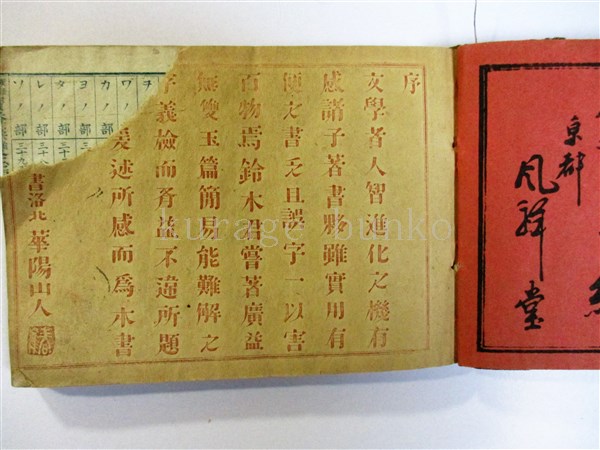 京都
風祥堂
序
文學者人智進化之機有
感諸子著書夥雖實用有
便之書乏且誤字一以害
百物焉鈴木君嘗著廣益
無雙玉篇簡易能難解之
字義檢而育益不違所題
爰述所感而為本書
書洛北 華陽山人
ヲ
ワノ部
カノ部
ヨノ部
タノ部
レノ部
ソノ部
kurage bunko